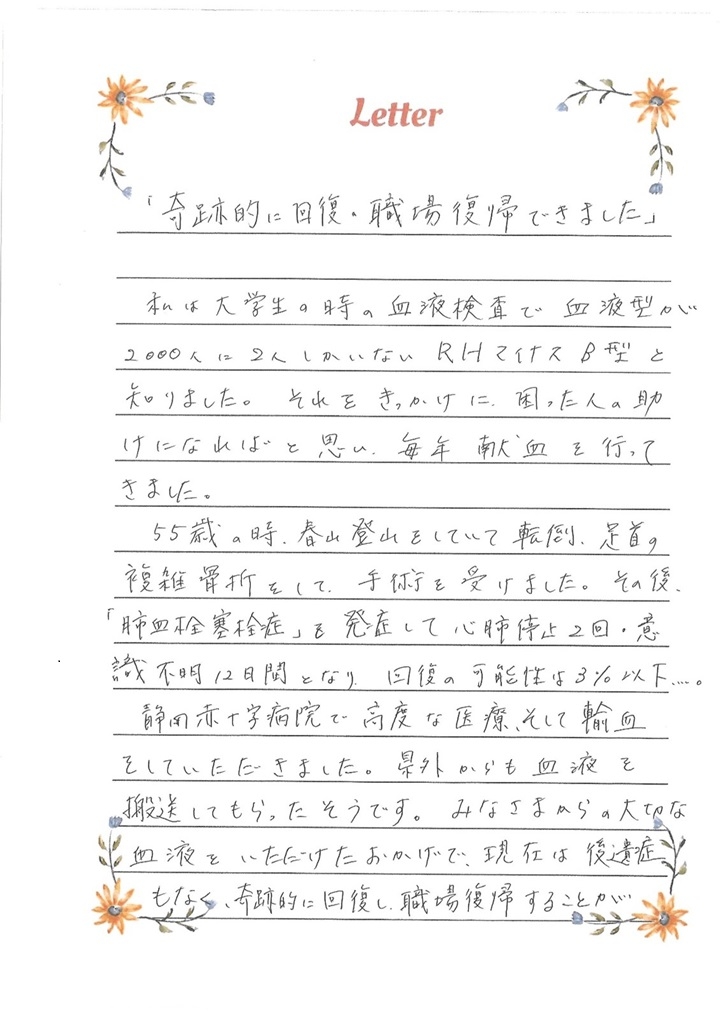 Letter
「奇跡的に回復・職場復帰できました」
私は大学生の時の血液検査で血液型が
2000人に2人しかいないRHマイナスB型と
知りました。それをきっかけに、困った人の助
けになればと思い、毎年献血を行って
きました。
55歳の時、春山登山をしていて転倒、足首の
複雑骨折をして、手術を受けました。その後、
「肺血栓塞栓症」を発症して心肺停止2回・意
識不明12日間となり、回復の可能性は3%以下……。
静岡赤十字病院で高度な医療、そして輸血
をしていただきました。県外からも血液を
搬送してもらったそうです。みなさまからの大切な
血液をいただけたおかげで、現在は後遺症
もなく、奇跡的に回復し、職場復帰することが